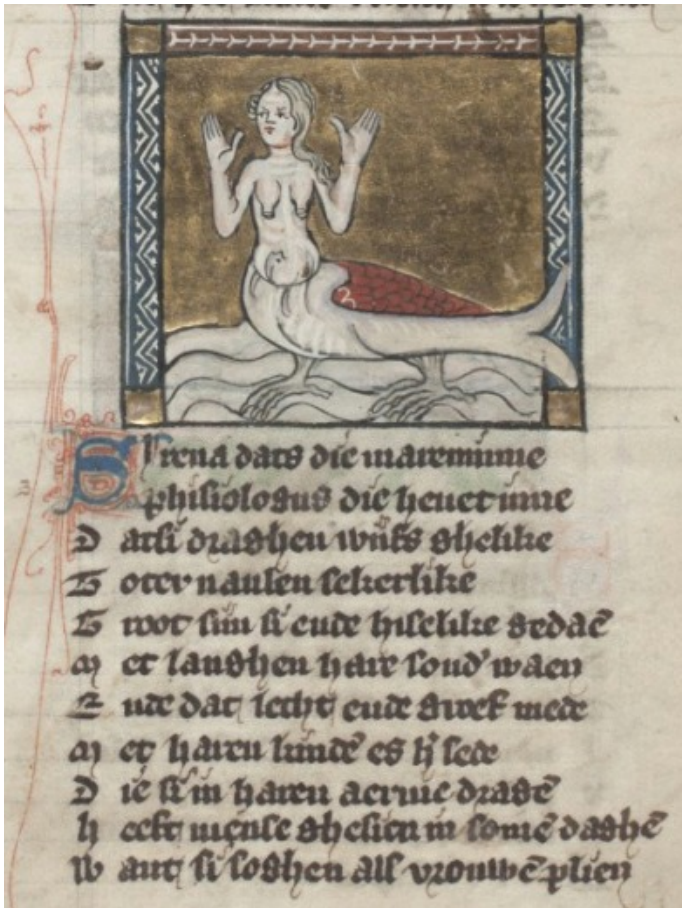 Sirena dats die maremine
phisiologus die hevet inne
D atsi draghen wijfs ghelike
T oter navlen sekerlike
G root sijn si ende hiselike gedaē
M et langhen hare sond' waen
E nde dat lecht ende groef mede
M et haren kindē es h' sede
D ie si in haren aerme dragē
h eeft mense ghesien in somē daghē
w ant si soghen als vrouwē plien